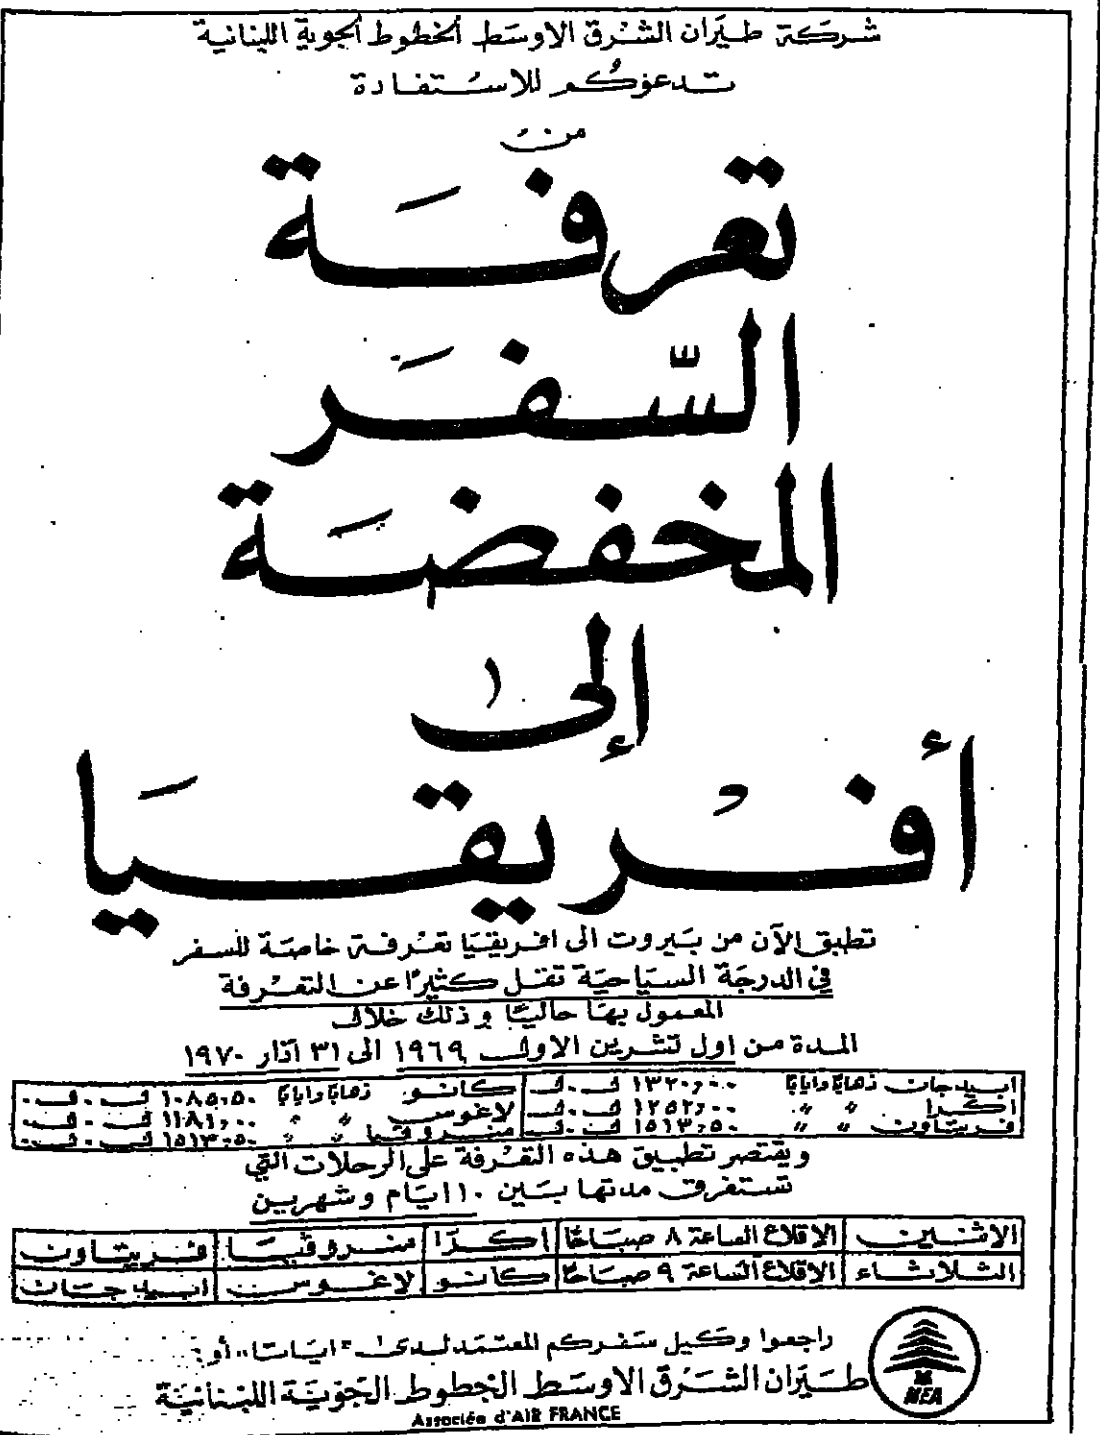 شركة طيران الشرق الاوسط الخطوط الجوية اللبنانية
تدعوكم للاستفادة
من
تعرفة
السّفر
المخفضة
إلى
أفريقيا
تطبق الآن من بيروت الى افريقيا تعرفة خاصة للسفر
في الدرجة السياحية تقل كثيرًا عن التعرفة
المعمول بها حاليًا وذلك خلال
المدة من اول تشرين الاول ١٩٦٩ الى ٣١ اذار ١٩٧٠
ابيدجان ذهابًا وايابًا ١٣٢٠,٠٠ ل.ل. كانو ذهابًا وايابًا ١٠٨٥,٥٠ ل.ل.
اكرا " " ١٢٥٢,٠٠ ل.ل. لاغوس " " ١١٨١,٠٠ ل.ل.
فريتاون " " ١٥١٣,٥٠ ل.ل. منروفيا " " ١٥١٣,٥٠ ل.ل.
ويقتصر تطبيق هذه التعرفة على الرحلات التي
تستغرق مدتها بين ١٠ ايام وشهرين
الاثنين الاقلاع الساعة ٨ صباحًا اكرا منروفيا فريتاون
الثلاثاء الاقلاع الساعة ٩ صباحًا كانو لاغوس ابيدجان
راجعوا وكيل سفركم المعتمد لدى "اياتا" أو:
طيران الشرق الاوسط الخطوط الجوية اللبنانية
Associée d'AIR FRANCE
MEA